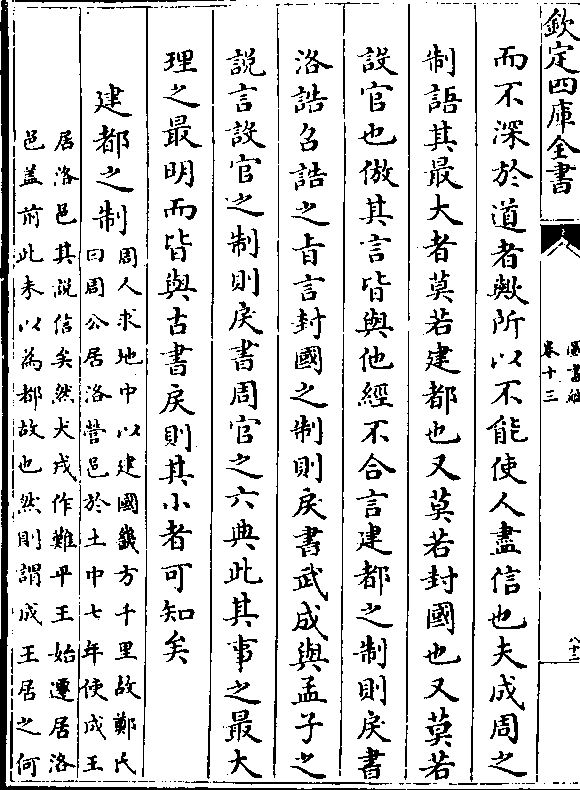 欽定四庫全書
圖書編
卷十三
八十三
而不深於道者歟所以不能使人盡信也夫成周之
制語其最大者莫若建都也又莫若封國也又莫若
設官也倣其言皆與他經不合言建都之制則戾書
洛誥召誥之旨言封國之制則戾書武成與孟子之
說言設官之制則戾書周官之六典此其事之最大
理之最明而皆與古書戾則其小者可知矣
建都之制周人求地中以建國畿方千里故鄭氏
曰周公居洛營邑於土中七年使成王
居洛邑其說信矣然犬戎作難平王始遷居洛
邑盖前此未以為都故也然則謂成王居之何